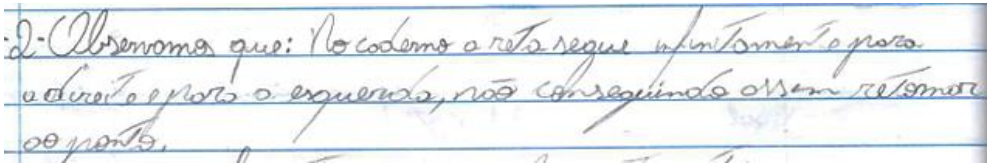 2- Observamos que: No caderno a reta segue infinitamente para
a direita e para a esquerda, não conseguindo assim retornar
ao ponto.